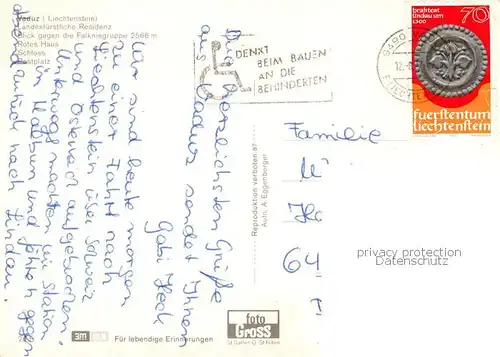 Vaduz (Liechtenstein)
Landesfürstliche Residenz
Blick gegen die Falknisgruppe 2566 m
Rotes Haus
Schloss
Postplatz
DENKT
BEIM BAUEN
AN DIE
BEHINDERTEN
9490
12.
70
fuerstentum
liechtenstein
Die herzlichsten Grüße
aus Vaduz sendet Ihnen
Gabi
Wir sind heute morgen
zu einer Fahrt nach
Liechtenstein über Schweiz
und Österreich aufgebrochen.
Unterwegs machten wir Station
in Malbun und fahren gegen
Abend zurück nach Lindau.
Familie
64
Reproduktion verboten 87
Aufn. A. Eggenberger
3m
Für lebendige Erinnerungen
foto
Gross
St. Gallen
privacy protection
Datenschutz